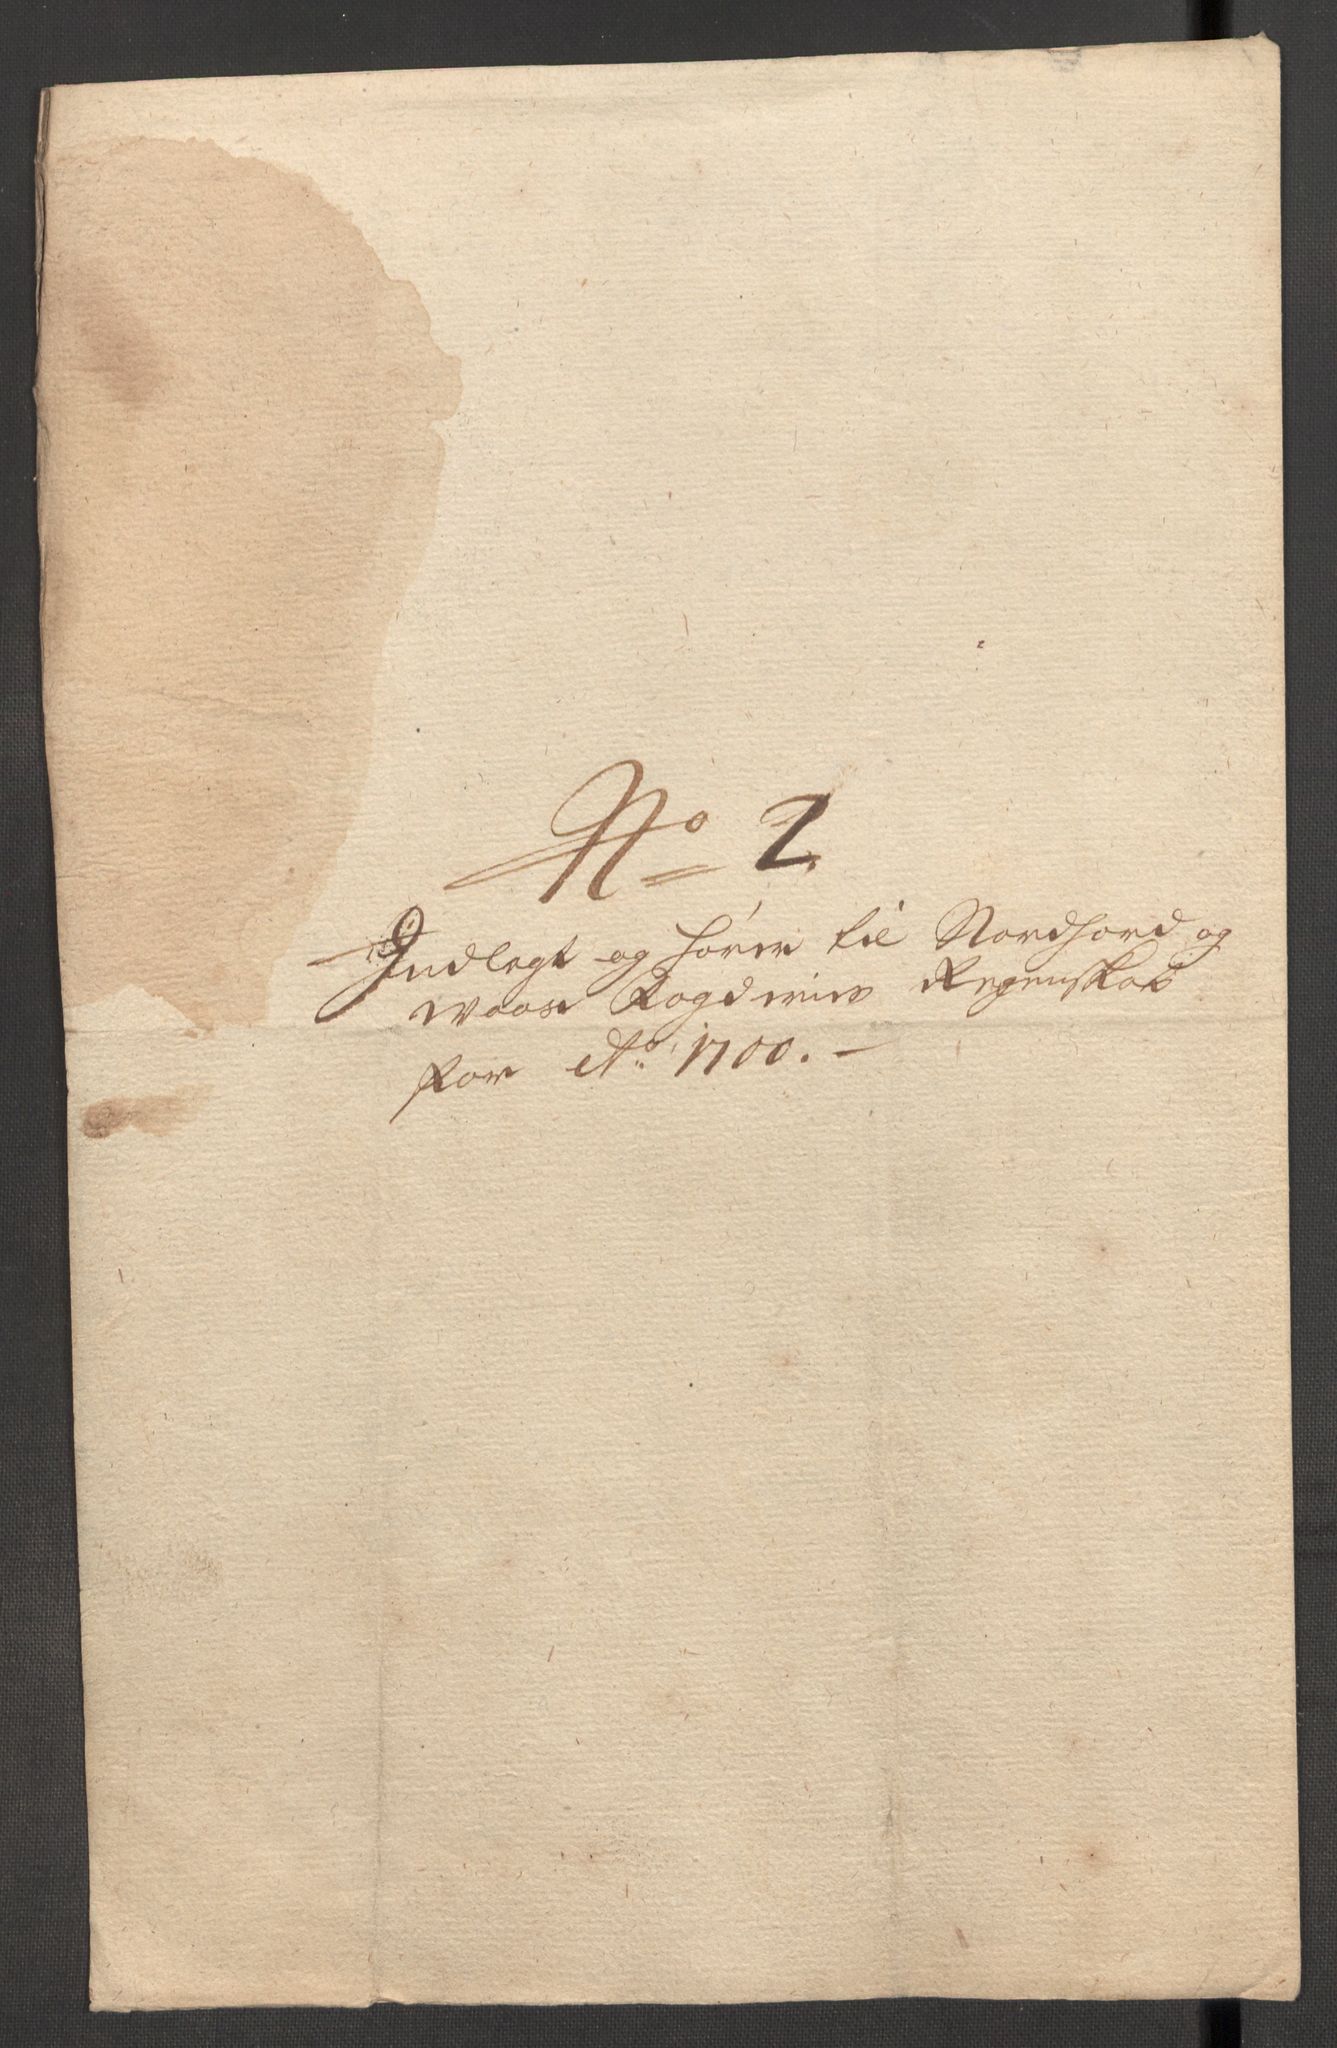 No 2.
Indlegt og hörer til Nordhord og
Woss Fogderies Regenskab
for Ao 1700. –